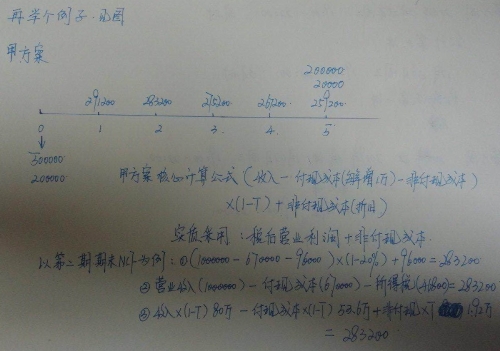 再举个例子.画图
甲方案
200000
20000
291200 283200 275200 267200 259200
0 1 2 3 4 5
500000
200000
甲方案核心计算公式(收入-付现成本(每年增1万)-非付现成本)
×(1-T)+非付现成本(折旧)
实质采用:税后营业利润+非付现成本.
以第二期期末NCF为例:①(1000000-670000-96000)×(1-20%)+96000=283200
②营业收入(1000000)-付现成本(670000)-所得税(46800)=283200
③收入×(1-T)80万-付现成本×(1-T)53.6万+非付现×T 1.92万
=283200